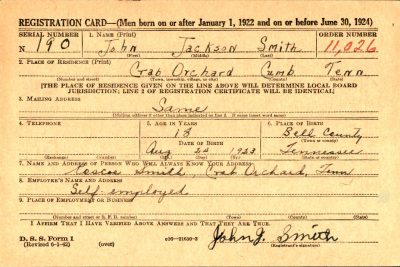 REGISTRATION CARD—(Men born on or after January 1, 1922 and on or before June 30, 1924)
SERIAL NUMBER 1. NAME (Print) ORDER NUMBER
N 190 John Jackson Smith 11,026
(First) (Middle) (Last)
2. PLACE OF RESIDENCE (Print)
Crab Orchard Cumb Tenn
(Number and street) (Town, township, village, or city) (County) (State)
[THE PLACE OF RESIDENCE GIVEN ON THE LINE ABOVE WILL DETERMINE LOCAL BOARD
JURISDICTION; LINE 2 OF REGISTRATION CERTIFICATE WILL BE IDENTICAL]
3. MAILING ADDRESS
Same
[Mailing address if other than place indicated on line 2. If same insert word same]
4. TELEPHONE 5. AGE IN YEARS 6. PLACE OF BIRTH
18 Bell County
DATE OF BIRTH (Town or county)
Aug 24 1923 Tennessee
(Exchange) (Number) (Mo.) (Day) (Yr.) (State or country)
7. NAME AND ADDRESS OF PERSON WHO WILL ALWAYS KNOW YOUR ADDRESS
Smith, Crab Orchard, Tenn
8. EMPLOYER'S NAME AND ADDRESS
Self employed
9. PLACE OF EMPLOYMENT OR BUSINESS
(Number and street or R. F. D. number) (Town) (County) (State)
I AFFIRM THAT I HAVE VERIFIED ABOVE ANSWERS AND THAT THEY ARE TRUE.
D. S. S. Form 1
(Revised 6-9-42) (over) 16—21630-2 John J. Smith
(Registrant's signature)